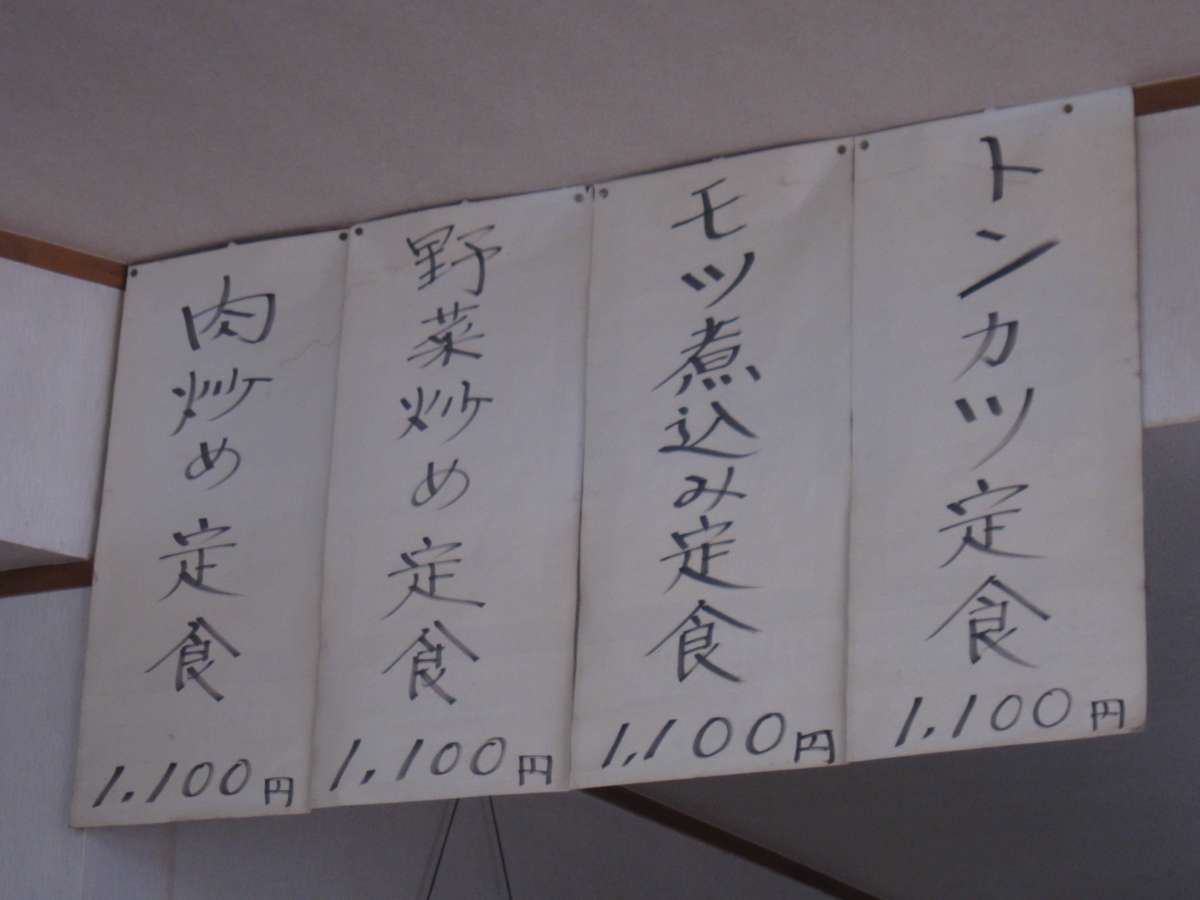 トンカツ定食
1,100円
モツ煮込み定食
1,100円
野菜炒め定食
1,100円
肉炒め定食
1,100円